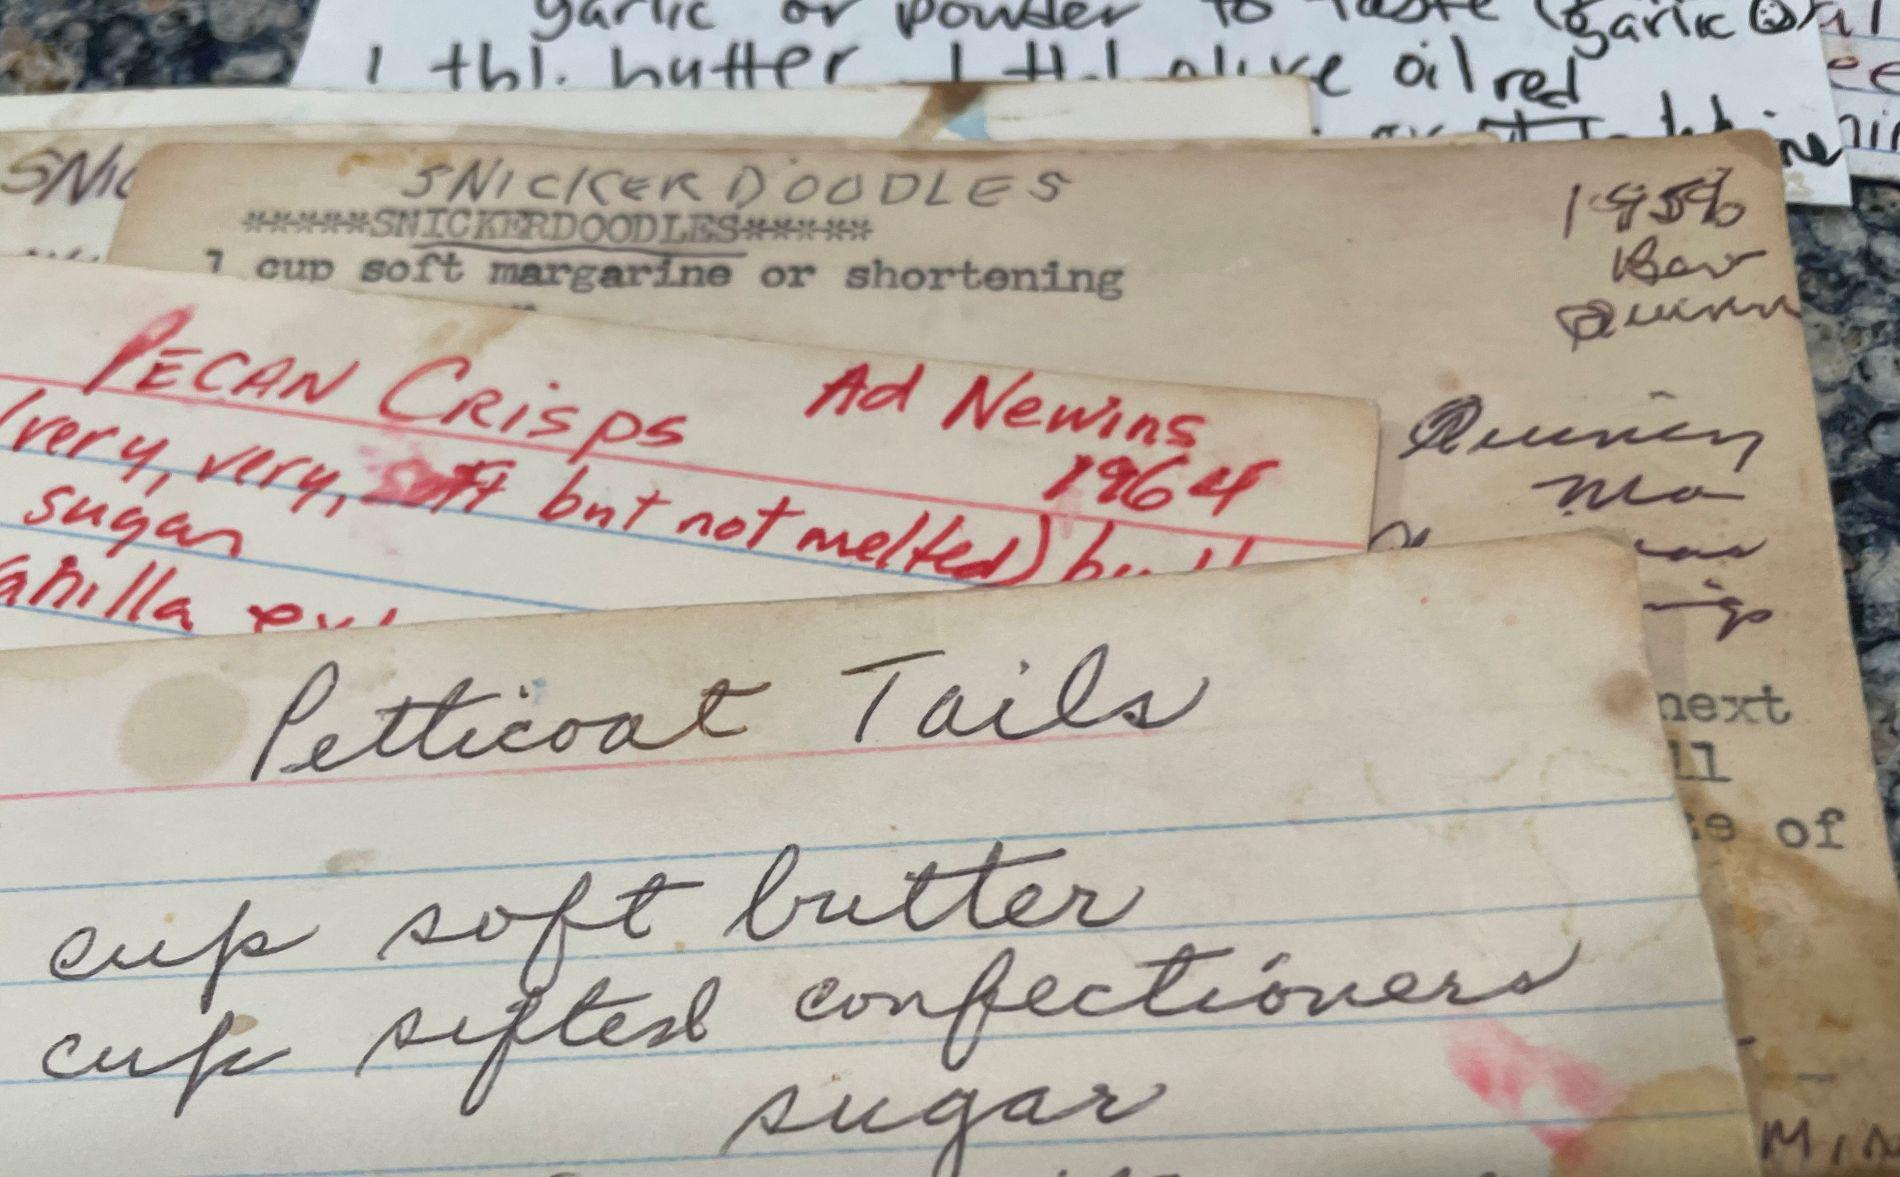 garlic or powder to taste (garlic
1 tbl. butter 1 tbl olive oil red
SNIC
SNICKERDOODLES
*****SNICKERDOODLES*****
1 cup soft margarine or shortening
1956
Bev
Quinn
Quincy
Ma
PECAN CRisps Ad Newins
1964
(very, very, soft but not melted)
sugar
vanilla
next
of
Petticoat Tails
cup soft butter
cup sifted confectioners
sugar